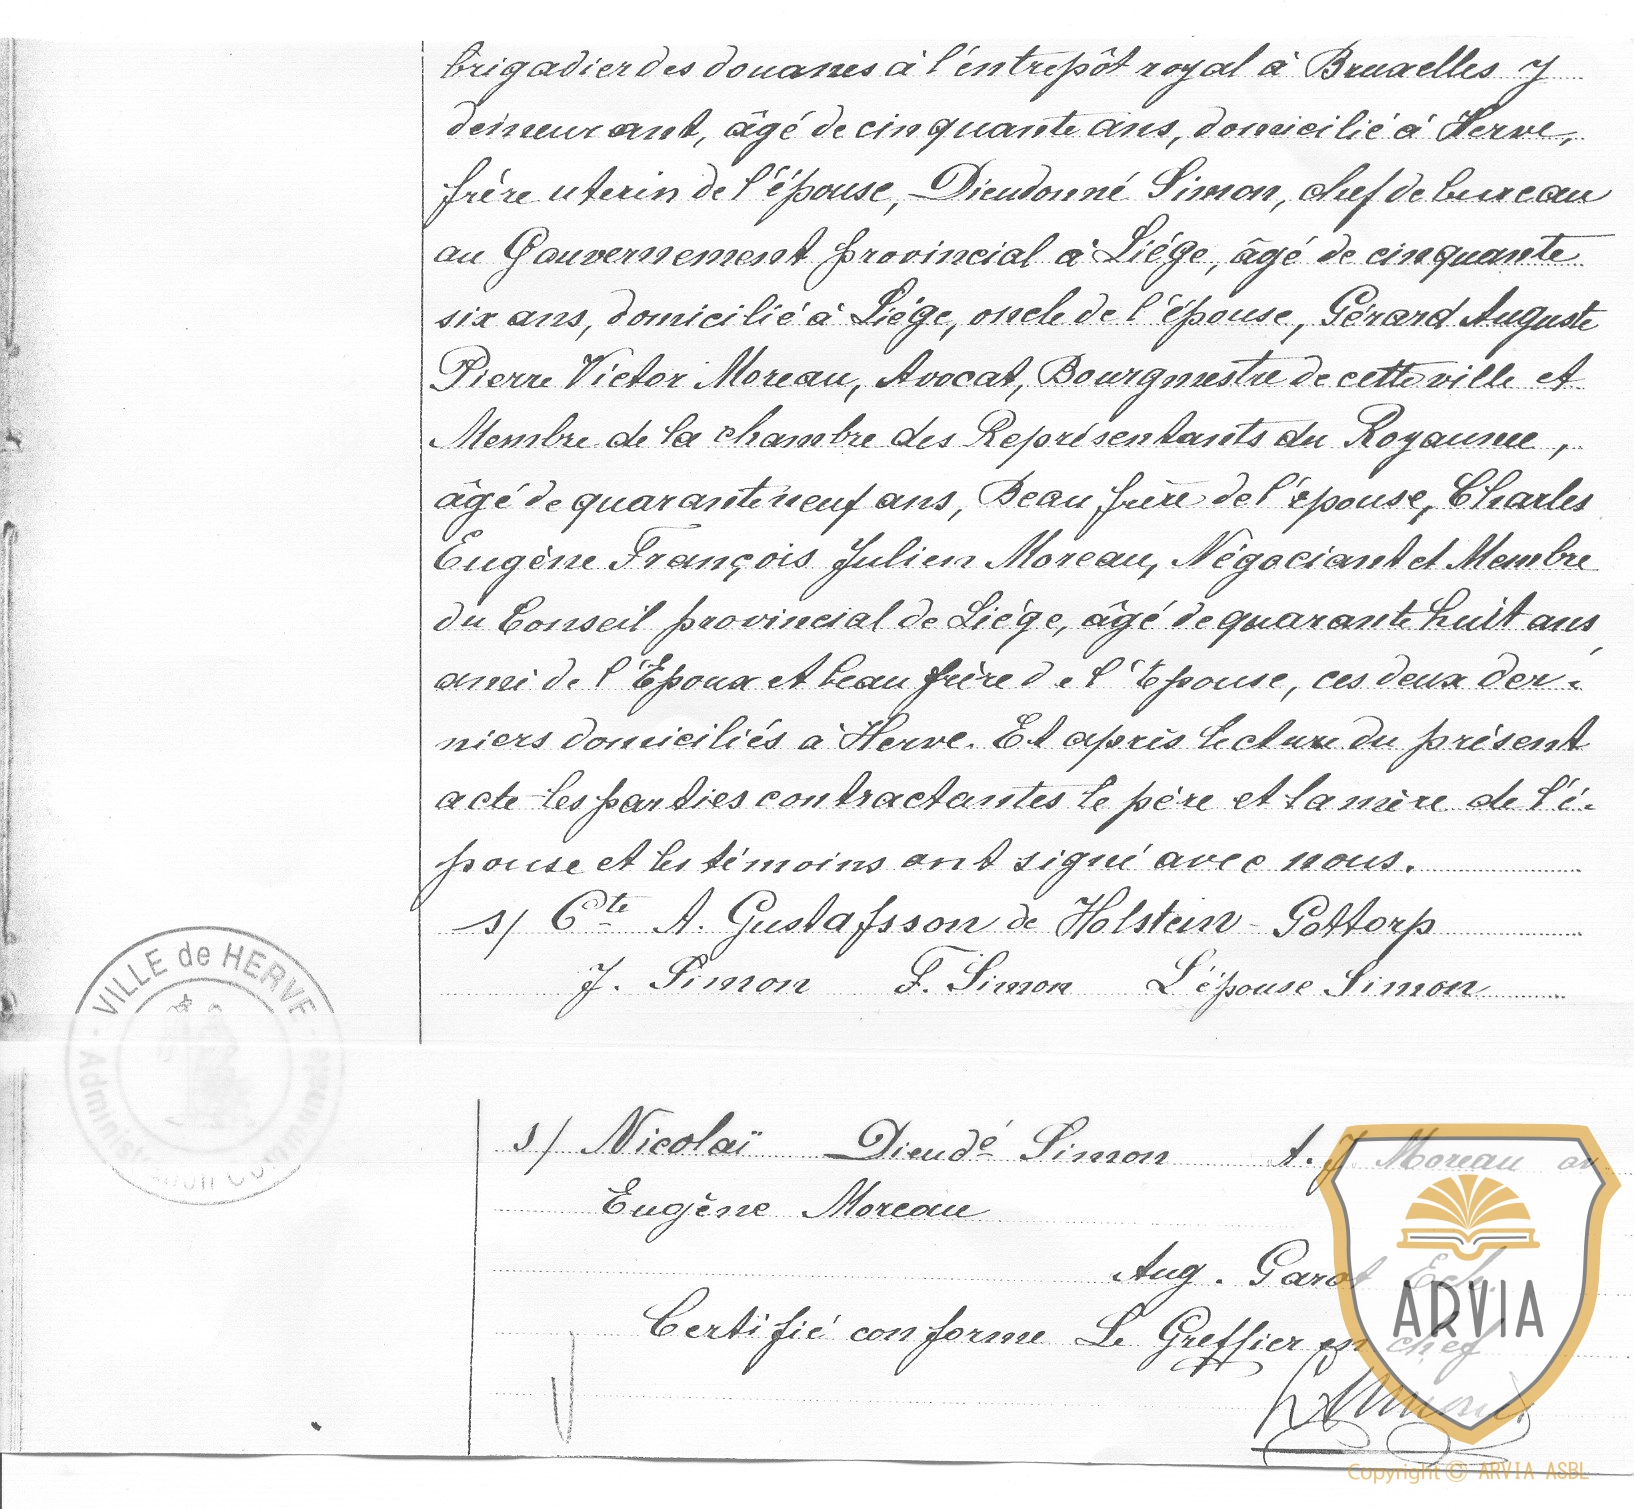 brigadier des douanes à l'entrepôt royal à Bruxelles y
demeurant, âgé de cinquante ans, domicilié à Herve,
frère uterin de l'épouse, Dieudonné Simon, chef de bureau
au Gouvernement provincial à Liége, âgé de cinquante
six ans, domicilié à Liége, oncle de l'épouse, Gérard Auguste
Pierre Victor Moreau, Avocat, Bourgmestre de cette ville et
Membre de la chambre des Représentants du Royaume,
âgé de quarante neuf ans, Beau frère de l'épouse, Charles
Eugène François Julien Moreau, Négociant et Membre
du Conseil provincial de Liége, âgé de quarante huit ans,
ami de l'Epoux et beau frère de l'Epouse, ces deux der-
niers domiciliés à Herve. Et après lecture du présent
acte les parties contractantes le père et la mère de l'é-
pouse et les témoins ont signé avec nous.
s/ Cte A. Gustafsson de Holstein-Gottorp
J. Simon F. Simon L'épouse Simon
VILLE de HERVE
Administration Communale
s/ Nicolaï Dieudé Simon A. J. Moreau av
Eugène Moreau
Aug. Garot Ech.
Certifié conforme Le Greffier en chef
ARVIA
Copyright © ARVIA ASBL